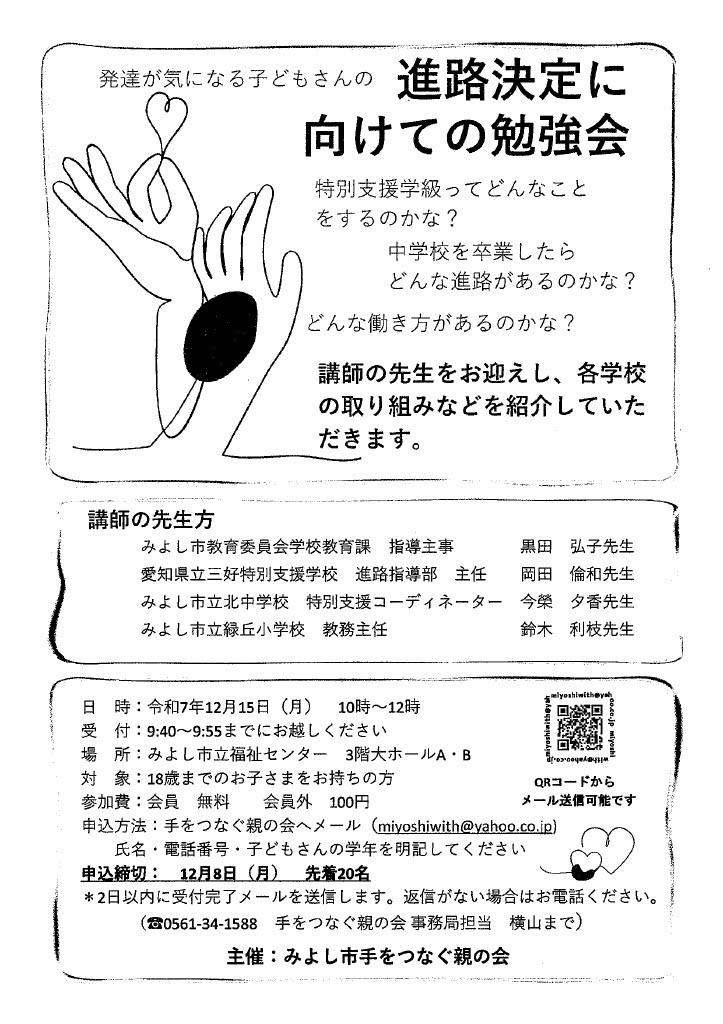 発達が気になる子どもさんの 進路決定に
向けての勉強会
特別支援学級ってどんなこと
をするのかな？
中学校を卒業したら
どんな進路があるのかな？
どんな働き方があるのかな？
講師の先生をお迎えし、各学校
の取り組みなどを紹介していた
だきます。
講師の先生方
みよし市教育委員会学校教育課　指導主事　黒田　弘子先生
愛知県立三好特別支援学校　進路指導部　主任　岡田　倫和先生
みよし市立北中学校　特別支援コーディネーター　今榮　夕香先生
みよし市立緑丘小学校　教務主任　鈴木　利枝先生
日　時：令和7年12月15日（月）　10時～12時
受　付：9:40～9:55までにお越しください
場　所：みよし市立福祉センター　3階大ホールA・B
対　象：18歳までのお子さまをお持ちの方
参加費：会員　無料　　会員外　100円
申込方法：手をつなぐ親の会へメール（miyoshiwith@yahoo.co.jp)
氏名・電話番号・子どもさんの学年を明記してください
申込締切：　12月8日（月）　先着20名
＊2日以内に受付完了メールを送信します。返信がない場合はお電話ください。
（☎0561-34-1588　手をつなぐ親の会 事務局担当　横山まで）
主催：みよし市手をつなぐ親の会
miyoshiwith@yah
oo.co.jp miyoshi
with@yahoo.co.jp
miyoshiwith@yah
QRコードから
メール送信可能です